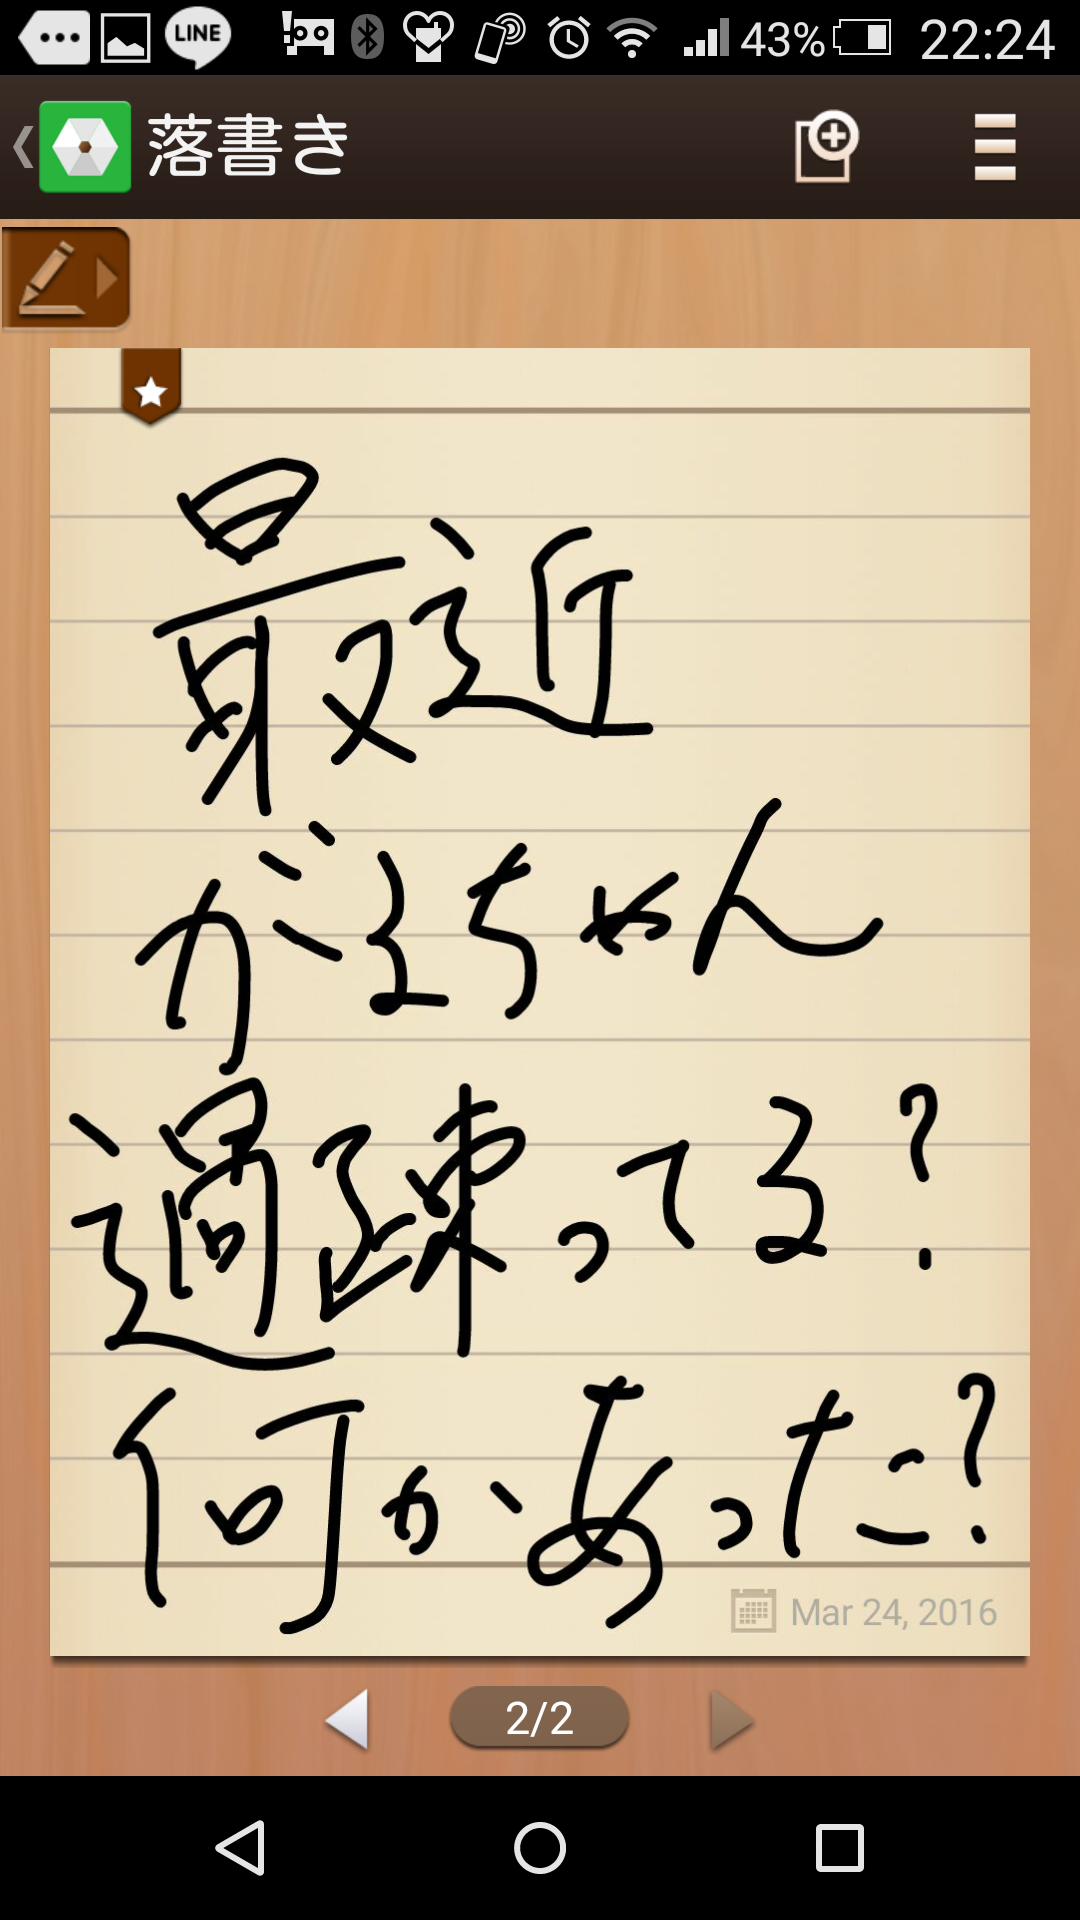 LINE 43% 22:24
落書き
最近
がるちゃん
過疎ってる?
何かあった?
Mar 24, 2016
2/2